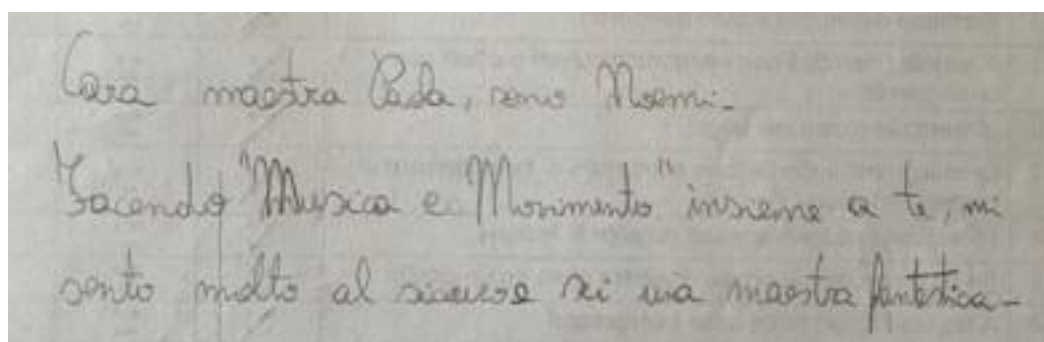 Cara maestra Paola, sono Noemi.
Facendo "Musica e Movimento" insieme a te, mi
sento molto al sicuro e sei una maestra fantastica.